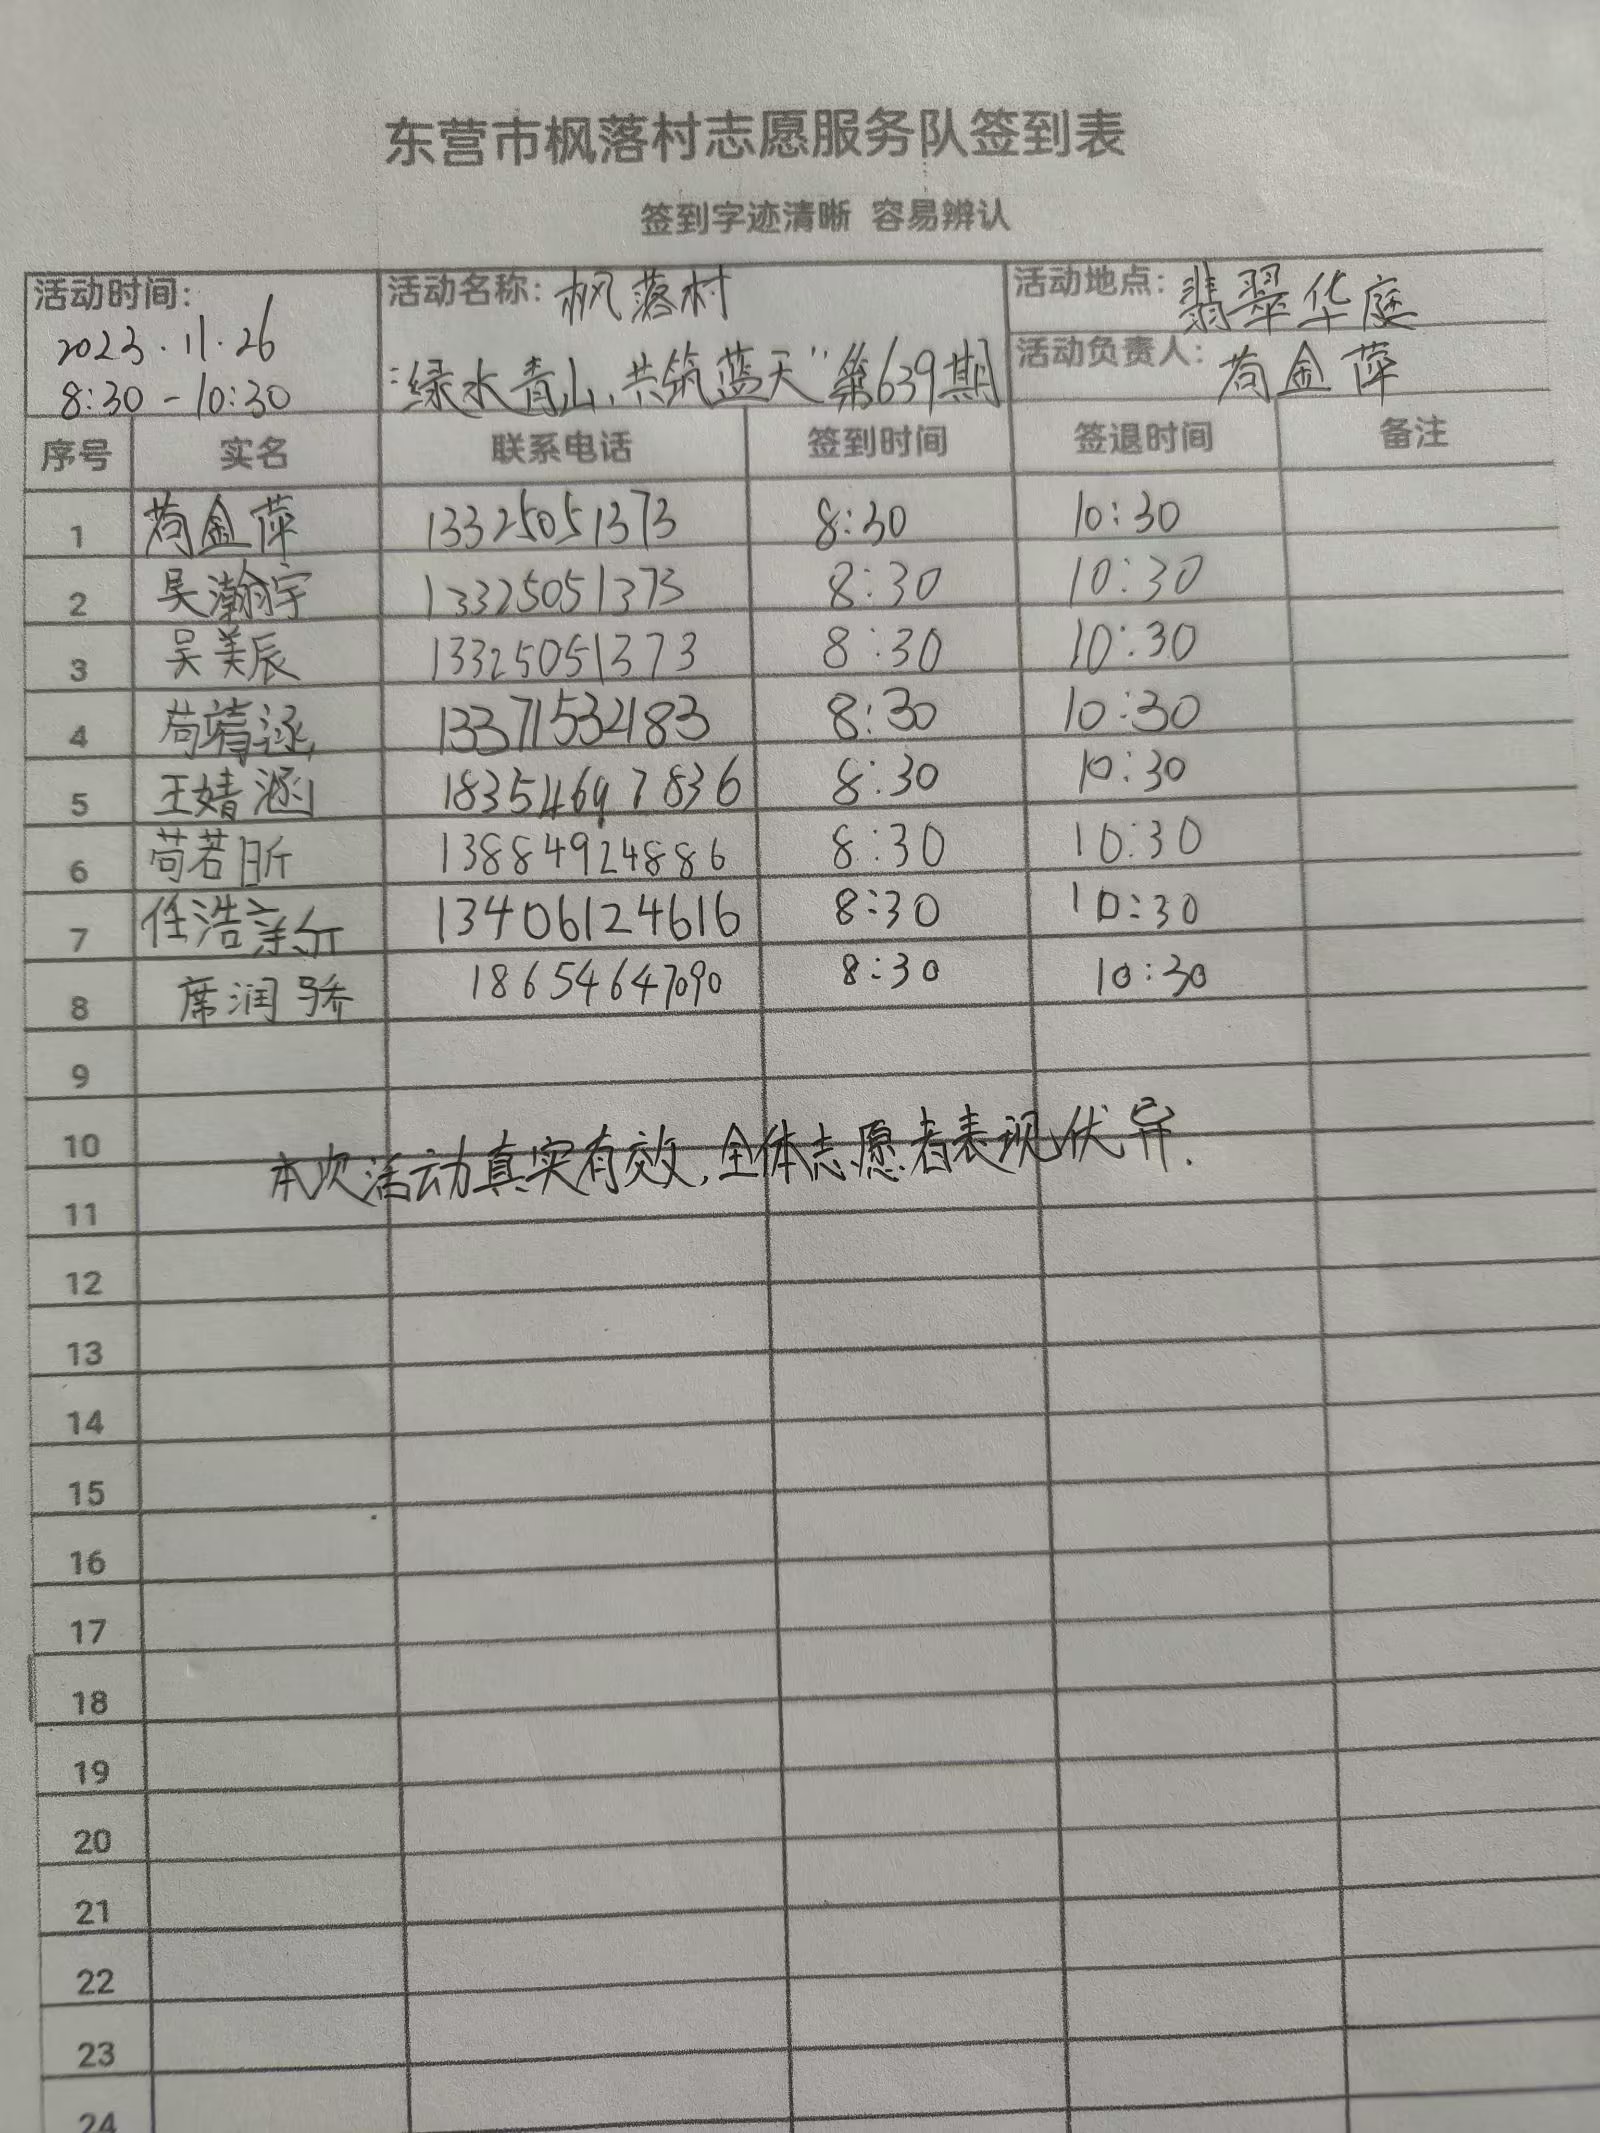 东营市枫落村志愿服务队签到表
签到字迹清晰 容易辨认
活动时间: 2023.11.26 8:30-10:30
活动名称: 枫落村
"绿水青山,共筑蓝天"第639期
活动地点: 翡翠华庭
活动负责人: 苟金萍
序号 实名 联系电话 签到时间 签退时间 备注
1 苟金萍 13325051373 8:30 10:30
2 吴瀚宇 13325051373 8:30 10:30
3 吴美辰 13325051373 8:30 10:30
4 苟靖涵 13371532183 8:30 10:30
5 王婧涵 18354697836 8:30 10:30
6 苟若昕 13884924886 8:30 10:30
7 任浩新 13406124616 8:30 10:30
8 席润骄 18654647090 8:30 10:30
9
10
本次活动真实有效,全体志愿者表现优异.
11
12
13
14
15
16
17
18
19
20
21
22
23
24